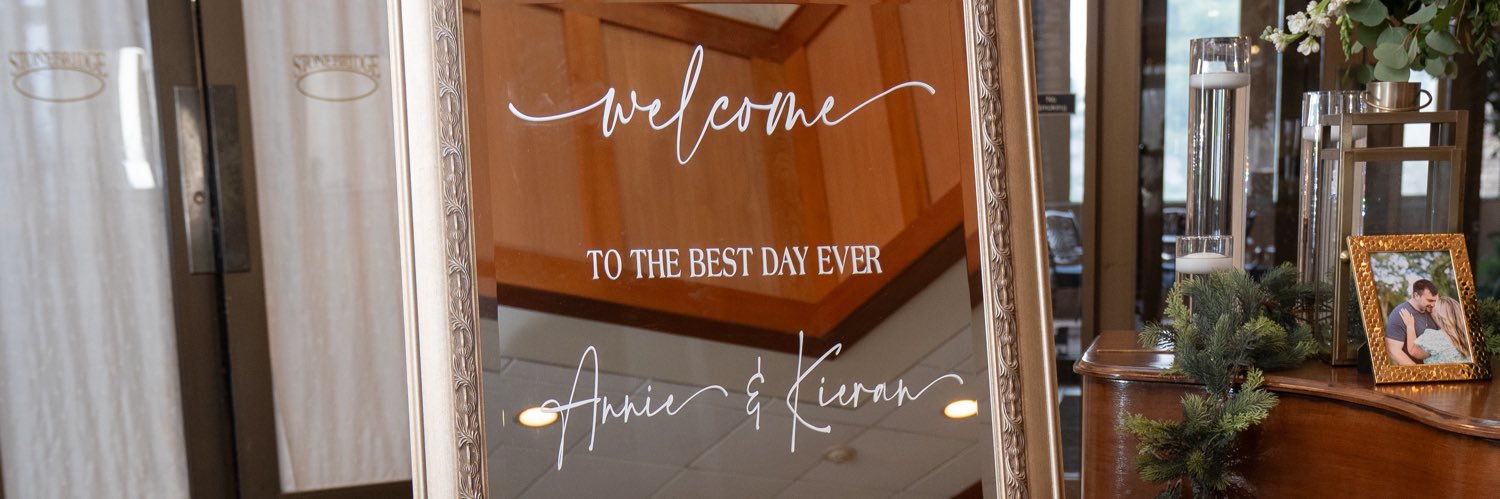 STONEBRIDGE
STONEBRIDGE
welcome
TO THE BEST DAY EVER
Annie & Kieran
No
Smoking